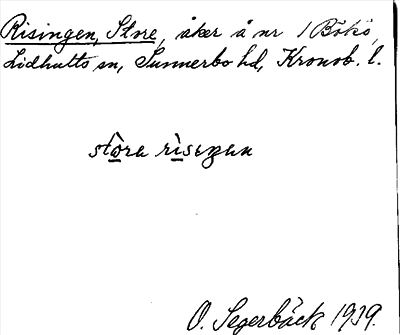 Risingen, Store, åker å nr 1 Bökö,
Lidhults sn, Sunnerbo hd, Kronob. l.
stòra rìsegan
O. Segerbäck 1939.